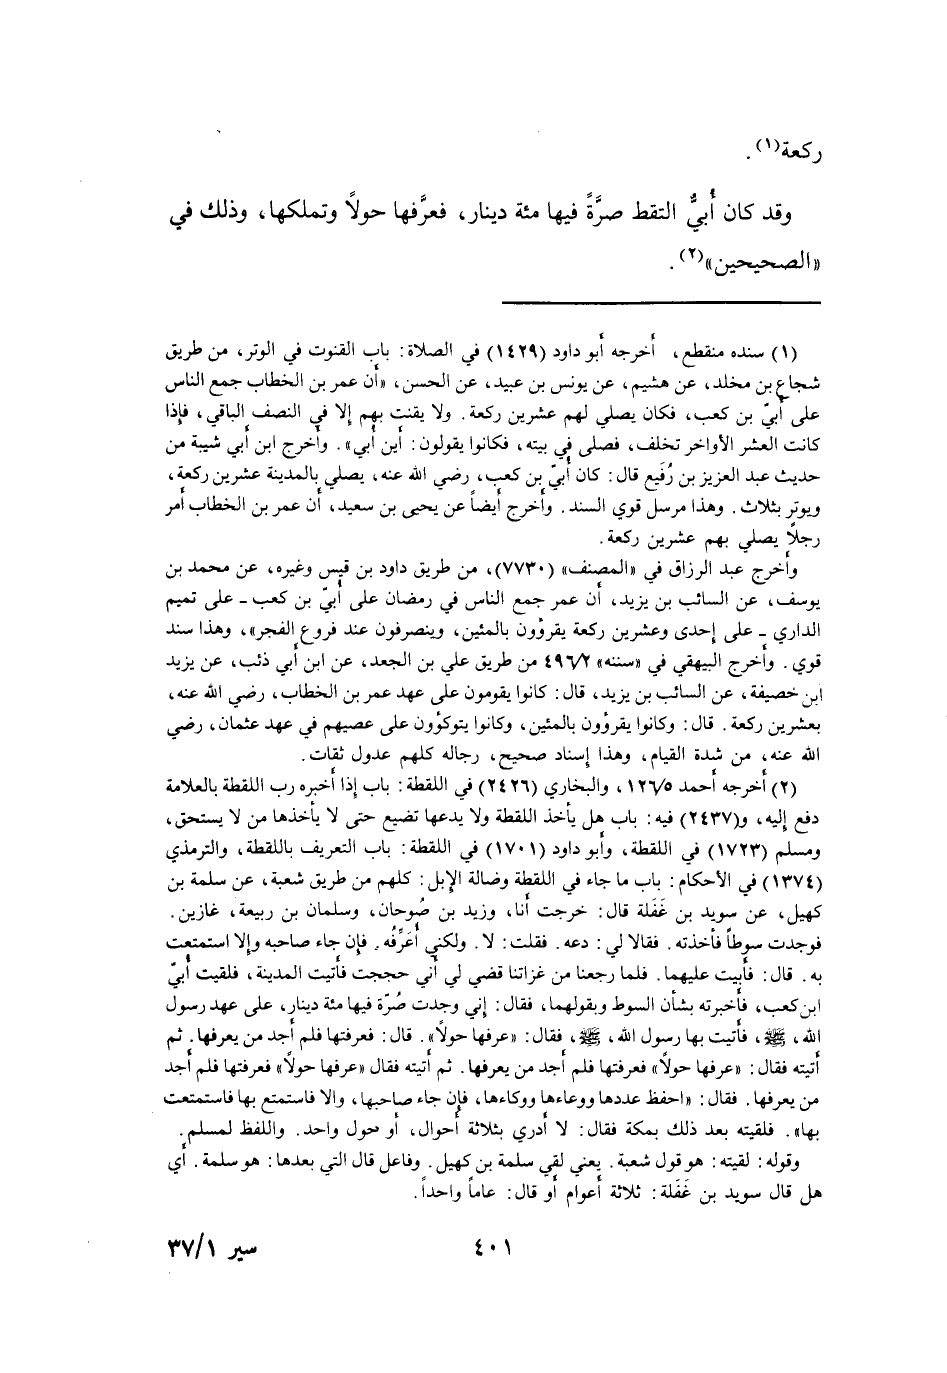 ركعة(١) .
وقد كان أُبيٌّ التقط صرَّةً فيها مئة دينار، فعرَّفها حولاً وتملكها، وذلك في
«الصحيحين»(٢) .
(١) سنده منقطع، أخرجه أبو داود (١٤٢٩) في الصلاة: باب القنوت في الوتر، من طريق
شجاع بن مخلد، عن هشيم، عن يونس بن عبيد، عن الحسن، «أن عمر بن الخطاب جمع الناس
على أُبيّ بن كعب، فكان يصلي لهم عشرين ركعة. ولا يقنت بهم إلا في النصف الباقي، فإذا
كانت العشر الأواخر تخلف، فصلى في بيته، فكانوا يقولون: أين أبي». وأخرج ابن أبي شيبة من
حديث عبد العزيز بن رُفَيع قال: كان أُبيّ بن كعب، رضي الله عنه، يصلي بالمدينة عشرين ركعة،
ويوتر بثلاث. وهذا مرسل قوي السند. وأخرج أيضاً عن يحيى بن سعيد، أن عمر بن الخطاب أمر
رجلاً يصلي بهم عشرين ركعة.
وأخرج عبد الرزاق في «المصنف» (٧٧٣٠)، من طريق داود بن قيس وغيره، عن محمد بن
يوسف، عن السائب بن يزيد، أن عمر جمع الناس في رمضان على أُبيّ بن كعب ـ على تميم
الداري ـ على إحدى وعشرين ركعة يقرؤون بالمئين، وينصرفون عند فروع الفجر»، وهذا سند
قوي. وأخرج البيهقي في «سننه» ٤٩٦/٢ من طريق علي بن الجعد، عن ابن أبي ذئب، عن يزيد
ابن خصيفة، عن السائب بن يزيد، قال: كانوا يقومون على عهد عمر بن الخطاب، رضي الله عنه،
بعشرين ركعة. قال: وكانوا يقرؤون بالمئين، وكانوا يتوكؤون على عصيهم في عهد عثمان، رضي
الله عنه، من شدة القيام، وهذا إسناد صحيح، رجاله كلهم عدول ثقات.
(٢) أخرجه أحمد ١٢٦/٥، والبخاري (٢٤٢٦) في اللقطة: باب إذا أخبره رب اللقطة بالعلامة
دفع إليه، و(٢٤٣٧) فيه: باب هل يأخذ اللقطة ولا يدعها تضيع حتى لا يأخذها من لا يستحق،
ومسلم (١٧٢٣) في اللقطة، وأبو داود (١٧٠١) في اللقطة: باب التعريف باللقطة، والترمذي
(١٣٧٤) في الأحكام: باب ما جاء في اللقطة وضالة الإبل: كلهم من طريق شعبة، عن سلمة بن
كهيل، عن سويد بن غَفَلة قال: خرجت أنا، وزيد بن صُوحان، وسلمان بن ربيعة، غازين.
فوجدت سوطاً فأخذته. فقالا لي: دعه. فقلت: لا. ولكني أُعَرِّفُه. فإن جاء صاحبه وإلا استمتعت
به. قال: فأبيت عليهما. فلما رجعنا من غزاتنا قضي لي أني حججت فأتيت المدينة، فلقيت أُبيّ
ابن كعب، فأخبرته بشأن السوط وبقولهما، فقال: إني وجدت صُرّة فيها مئة دينار، على عهد رسول
الله، ﷺ، فأتيت بها رسول الله، ﷺ، فقال: «عرفها حولاً». قال: فعرفتها فلم أجد من يعرفها. ثم
أتيته فقال: «عرفها حولاً» فعرفتها فلم أجد من يعرفها. ثم أتيته فقال «عرفها حولاً» فعرفتها فلم أجد
من يعرفها. فقال: «احفظ عددها ووعاءها ووكاءها، فإن جاء صاحبها، والا فاستمتع بها فاستمتعت
بها». فلقيته بعد ذلك بمكة فقال: لا أدري بثلاثة أحوال، أو حول واحد. واللفظ لمسلم.
وقوله: لقيته: هو قول شعبة. يعني لقي سلمة بن كهيل. وفاعل قال التي بعدها: هو سلمة. أي
هل قال سويد بن غَفَلة: ثلاثة أعوام أو قال: عاماً واحداً.
٤٠١
سير ٣٧/١